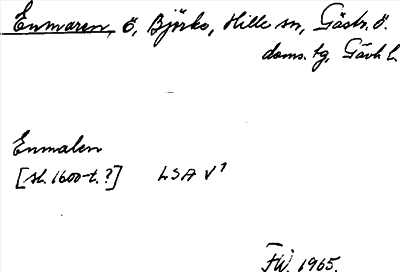 Enmaren, ö, Björkö, Hille sn, Gästr. ö.
doms. tg, Gävleb. l.
Enmalen
[sl. 1600-t.?] LSA V¹
FW. 1965.